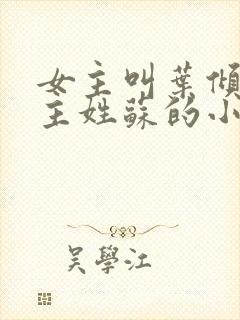 女主叫葉傾
主姓蘇的小
吳學江